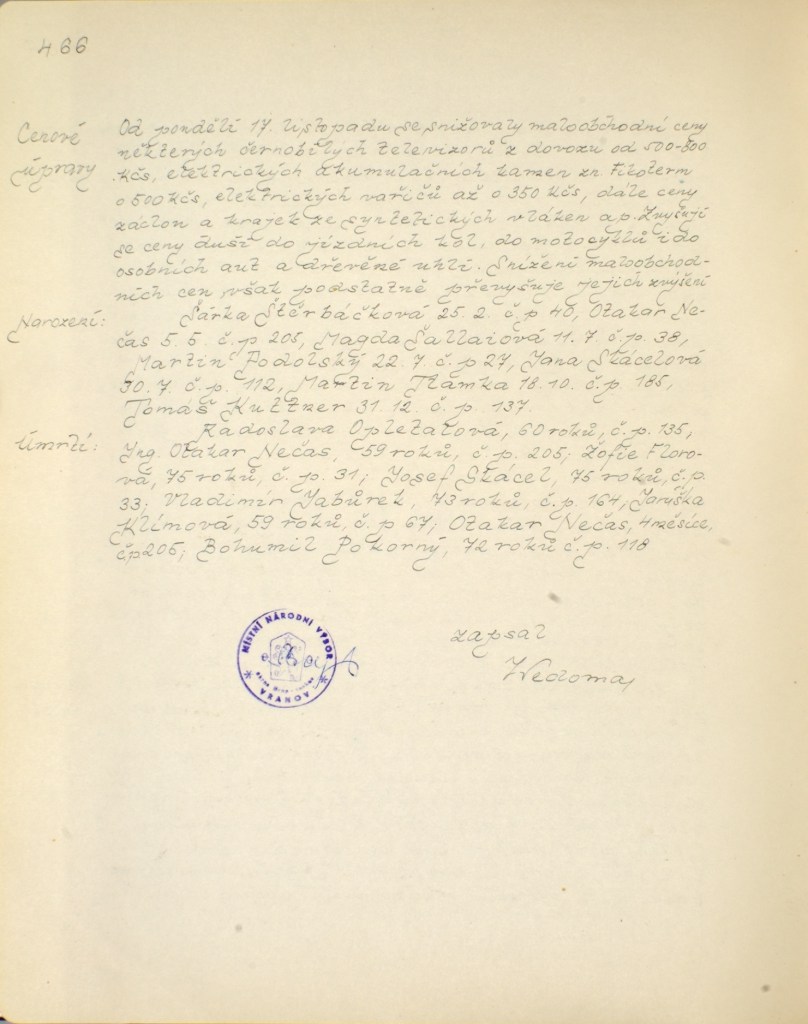 466
Cenové úpravy
Od pondělí 17. listopadu se snižovaly maloobchodní ceny
některých černobílých televizorů z dovozu od 500-800
Kčs, elektrických akumulačních kamen zn. Fikoterm
o 500 Kčs, elektrických vařičů až o 350 Kčs, dále ceny
záclon a krajek ze syntetických vláken ap. Zvyšují
se ceny duší do jízdních kol, do motocyklů i do
osobních aut a dřevěné uhlí. Snížení maloobchod-
ních cen však podstatně převyšuje jejich zvýšení
Narození:
Šárka Štěrbáčková 25. 2. č. p 40, Otakar Ne-
čas 5. 5. č. p 205, Magda Šallaiová 11. 7. č. p. 38,
Martin Podolský 22. 7. č. p 27, Jana Skácelová
30. 7. č. p. 112, Martin Tlamka 18. 10. č. p. 185,
Tomáš Kuttner 31. 12. č. p. 137.
Úmrtí:
Radoslava Opletalová, 60 roků, č. p. 135,
Ing. Otakar Nečas, 59 roků, č. p. 205; Žofie Floro-
vá, 75 roků, č. p. 31; Josef Skácel, 75 roků, č. p.
33; Vladimír Jabůrek, 73 roků, č. p. 164; Jaruška
Klímová, 59 roků, č. p 67; Otakar Nečas, 4 měsíce,
čp 205; Bohumil Pokorný, 72 roků č. p. 118
zapsal
Wedoma
MÍSTNÍ NÁRODNÍ VÝBOR
VRANOV